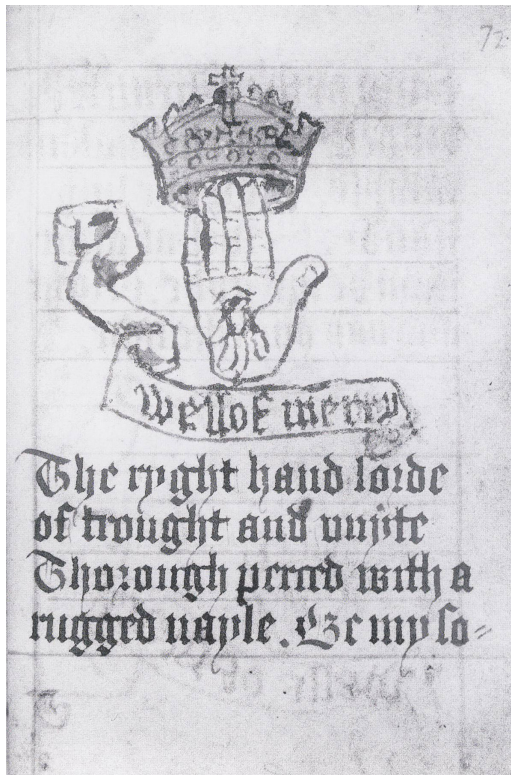 72
well of mercy
The ryght hand lorde
of trought and vnyte
Thorough perced with a
rugged nayle. Be my so=